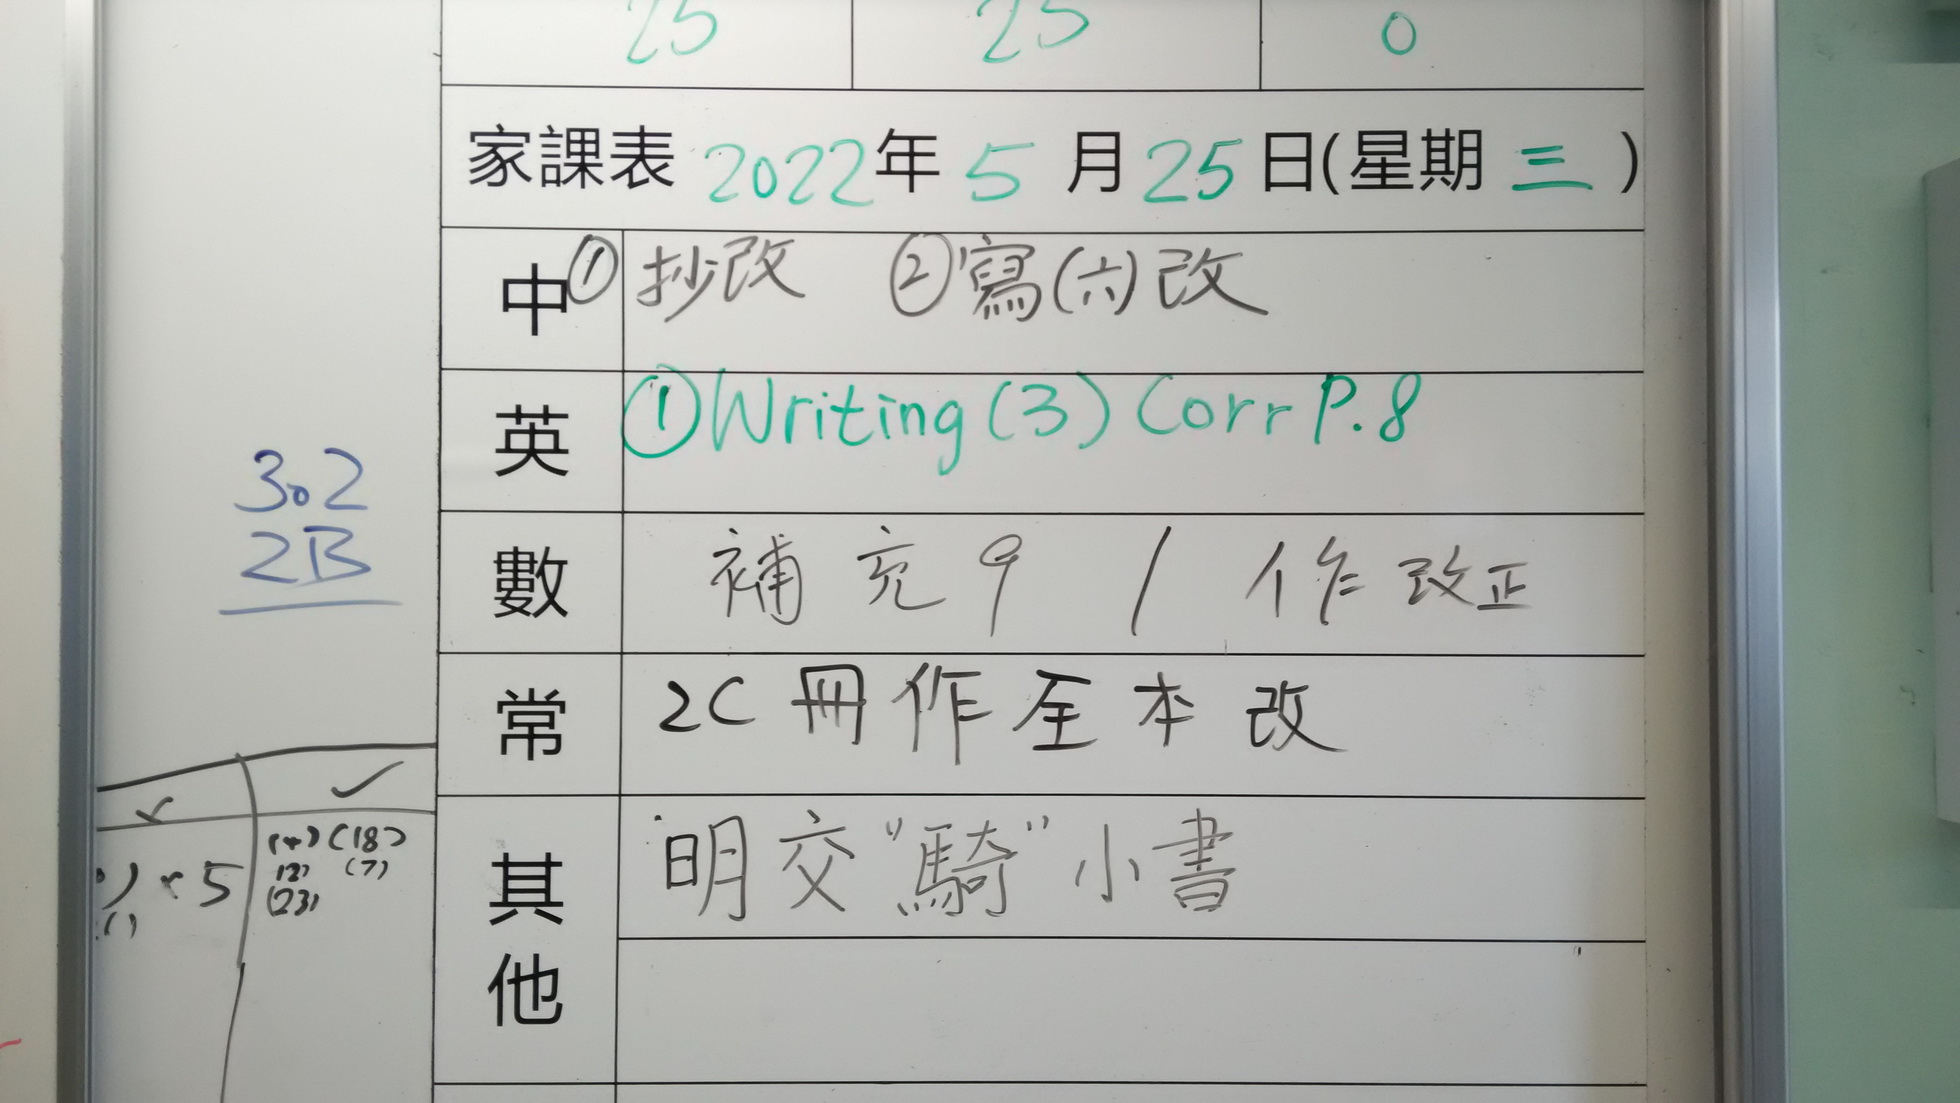 25 25 0
家課表 2022年 5 月 25 日(星期 三 )
中 ① 抄改 ② 寫(六)改
英 ① Writing (3) Corr P.8
3.2
2B
數 補充 9 / 作改正
常 2C 冊作至本改
✓ (18)
(7)
5
(23)
其他 明交"騎"小書